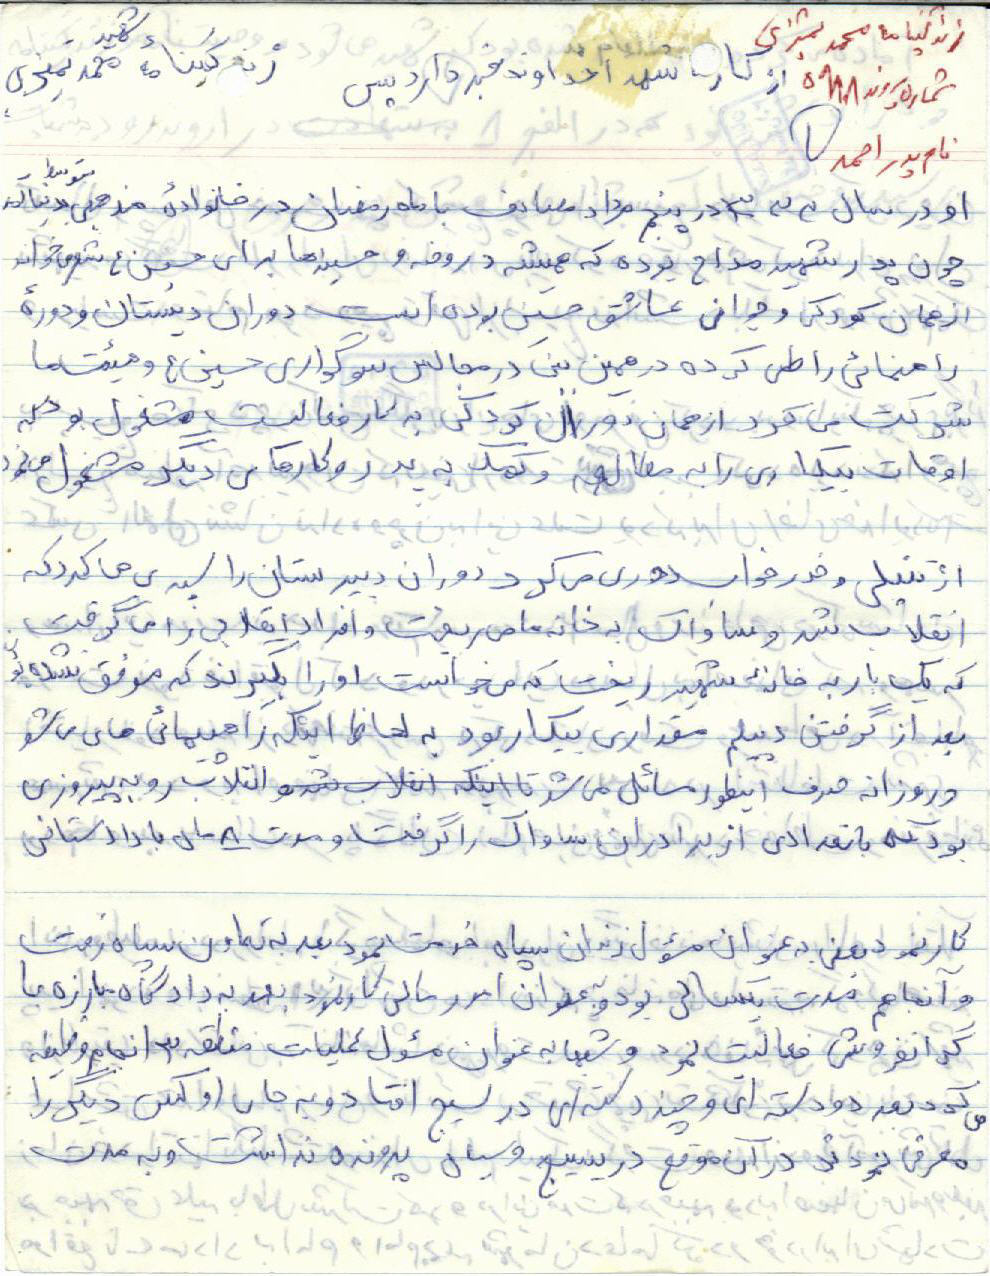 زندگینامه محمد
شماره پرونده ۵۹۸۸
نام پدر احمد
زندگینامه شهید محمد
از کارنامه شهید خداوند خبر دارد و بس
او در سال در پنجم مرداد مصادف با ماه رمضان در خانواده مذهبی متولد
چون پدر شهید مداح بوده که همیشه در روضه و حسینیه‌ها برای حسین ع شعر می‌خواند
از همان کودکی و جوانی عاشق حسین بوده است دوران دبستان و دورهٔ
راهنمائی را طی کرده در همین سن در مجالس سوگواری حسین ع و هیئت‌ها
شرکت می‌کرد از همان دوران کودکی به کار و فعالیت مشغول بود که
اوقات بیکاری را به مطالعه و کمک به پدر و کارهای دیگر مشغول می‌نمود
از تنبلی و خواب دوری می‌کرد دوران دبیرستان را سپری می‌کرد که
انقلاب شد و ساواک به خانه ما می‌ریخت و افراد انقلابی را می‌گرفت
که یک بار به خانهٔ شهید ریخت که می‌خواست او را بگیرند که موفق نشده بود
بعد از گرفتن دیپلم مقداری بیکار بود به لحاظ اینکه راهپیمائی‌های می‌شد
و روزانه صرف اینطور مسائل می‌شد تا اینکه انقلاب شد و انقلاب رو به پیروزی
بود که با تعدادی از برادران ساواک را گرفت و مدت ۸ ماه با دادستانی
کار نمود یعنی به عنوان مسؤل زندان سپاه خدمت نمود بعد به تعاون سپاه رفت
و آنجا هم مدت یکسالی بود و به عنوان امور مالی کار نمود بعد به دادگاه مبارزه با
گرانفروشی فعالیت نمود و شبها به عنوان مسئول عملیات منطقه ۳ انجام وظیفه
می‌کرد بعد دو دسته‌ای و چند دسته‌ای در بسیج افتاد و به جای او کس دیگری را
معرفی نمودند در آن موقع در بسیج و سپاه پرونده نداشت و به مدت